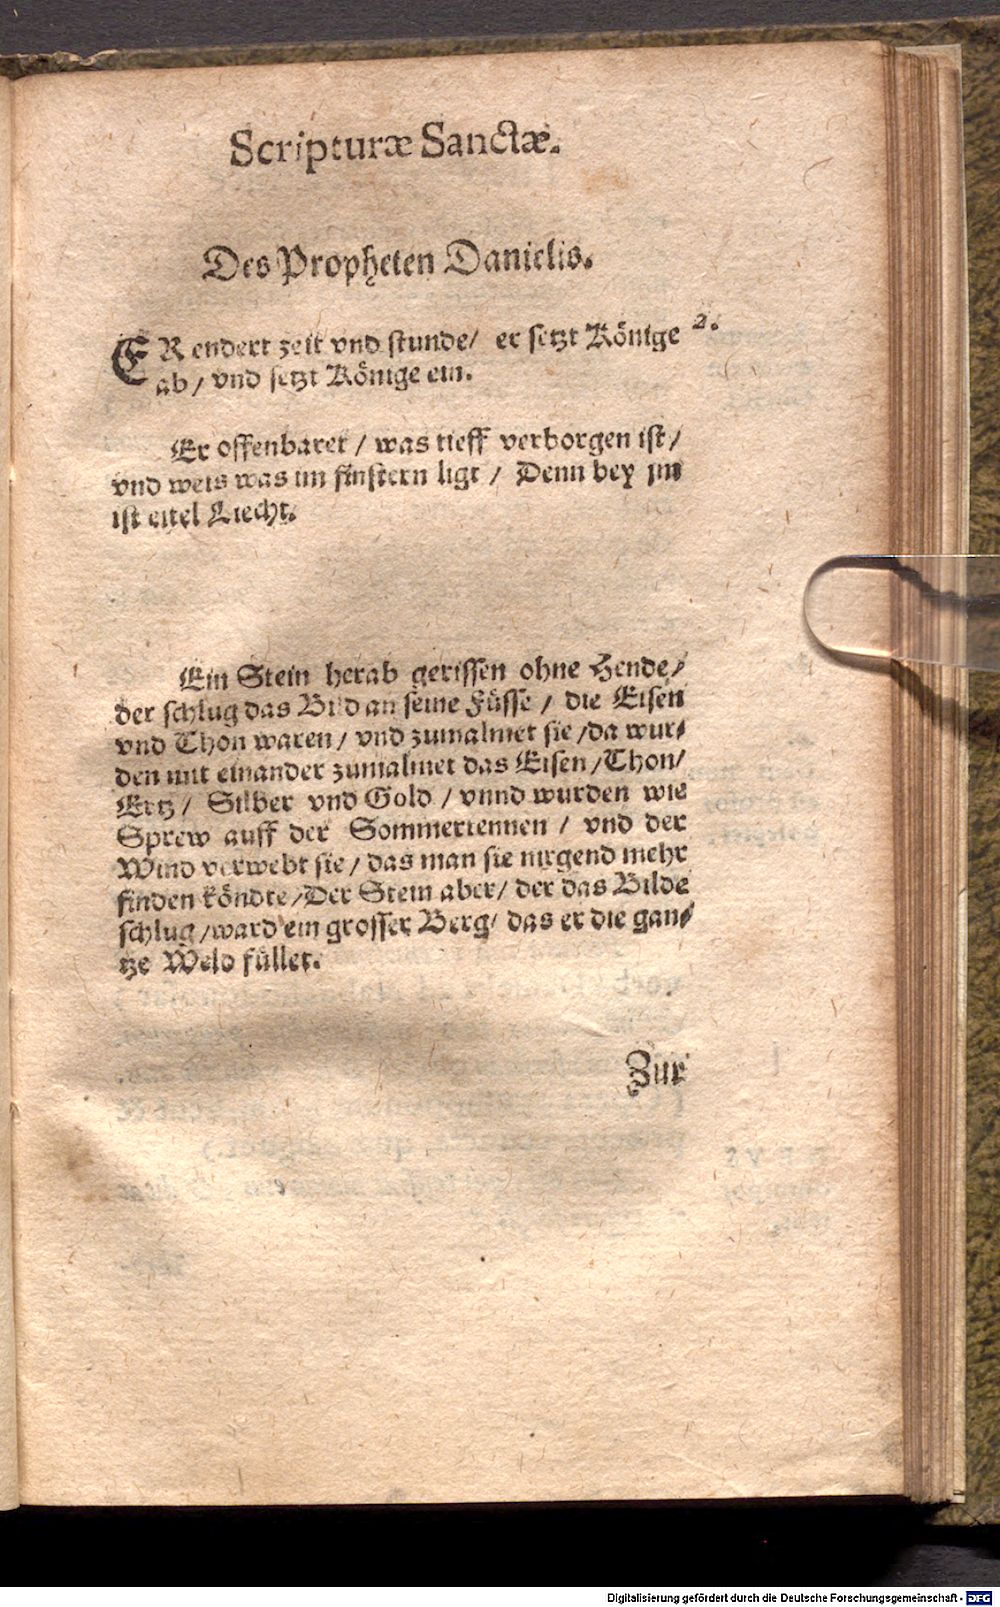 Scripturæ Sanctæ.
Des Propheten Danielis.
ER endert zeit vnd stunde/ er setzt Könige 2.
ab/ vnd setzt Könige ein.
Er offenbaret / was tieff verborgen ist/
vnd weis was im finstern ligt / Denn bey jm
ist eitel Liecht.
Ein Stein herab gerissen ohne Hende/
der schlug das Bild an seine Füsse / die Eisen
vnd Thon waren/ vnd zumalmet sie /da wur-
den mit einander zumalmet das Eisen/Thon/
Ertz/ Silber vnd Gold / vnnd wurden wie
Sprew auff der Sommertennen / vnd der
Wind verwebt sie/ das man sie nirgend mehr
finden köndte/Der Stein aber/ der das Bilde
schlug/ward ein grosser Berg/ das er die gan-
tze Weld füllet.
Zur
Digitalisierung gefördert durch die Deutsche Forschungsgemeinschaft - DFG